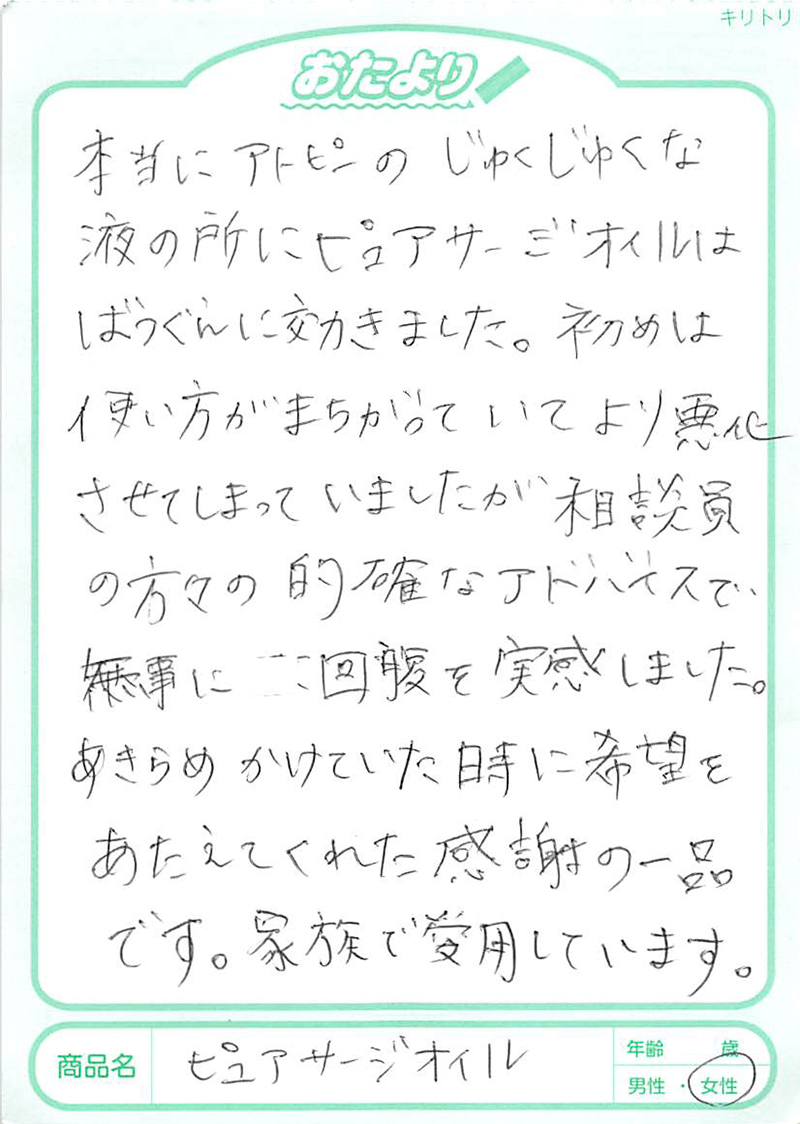 キリトリ
おたより
本当にアトピンのじゅくじゅくな
液の所にピュアサージオイルは
ばつぐんに効きました。初めは
使い方がまちがっていてより悪化
させてしまっていましたが相談員
の方々の的確なアドバイスで、
無事に回腹を実感しました。
あきらめかけていた時に希望を
あたえてくれた感謝の一品
です。家族で愛用しています。
商品名 ピュアサージオイル
年齢 歳
男性・女性